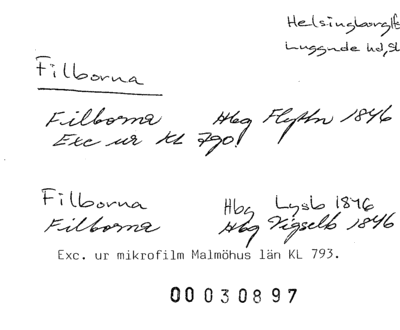 Helsingborg
Luggude hd, Sk
Filborna
Filborna Hbg Flyttn 1846
Exc ur KL 790!
Filborna Hbg Lysb 1846
Filborna Hbg Vigselb 1846
Exc. ur mikrofilm Malmöhus län KL 793.
00030897